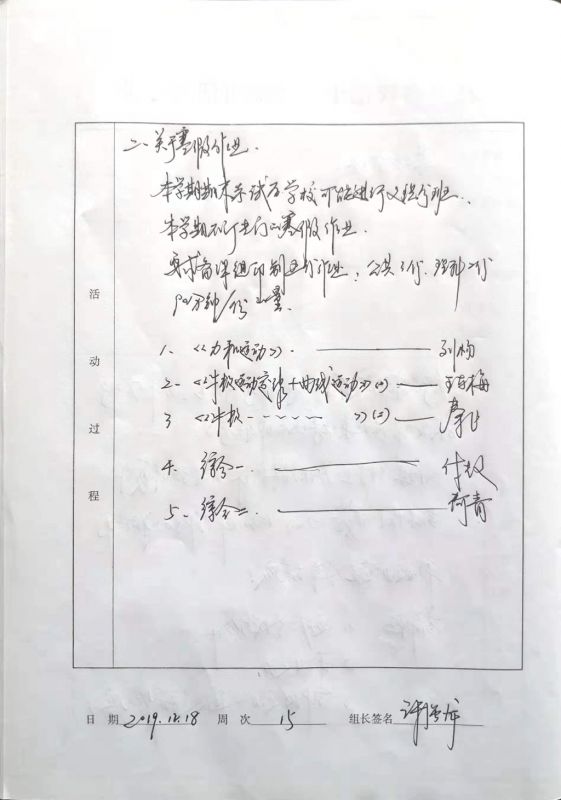 二、关于寒假作业.
本学期期末考试后学校可能进行文理分班.
本学期不订专门的寒假作业.
要求备课组印制五份作业: 公共3份. 理科2份
90分钟/份 量.
活动过程
1、《力和运动》. ——— 孙杨
2、《牛顿运动定律+曲线运动》(一) —— 梅
3 《牛顿 ------ 》(二) ——
4、综合一. ———
5、综合二 ——— 青
日 期 2019.12.18 周 次 15 组长签名